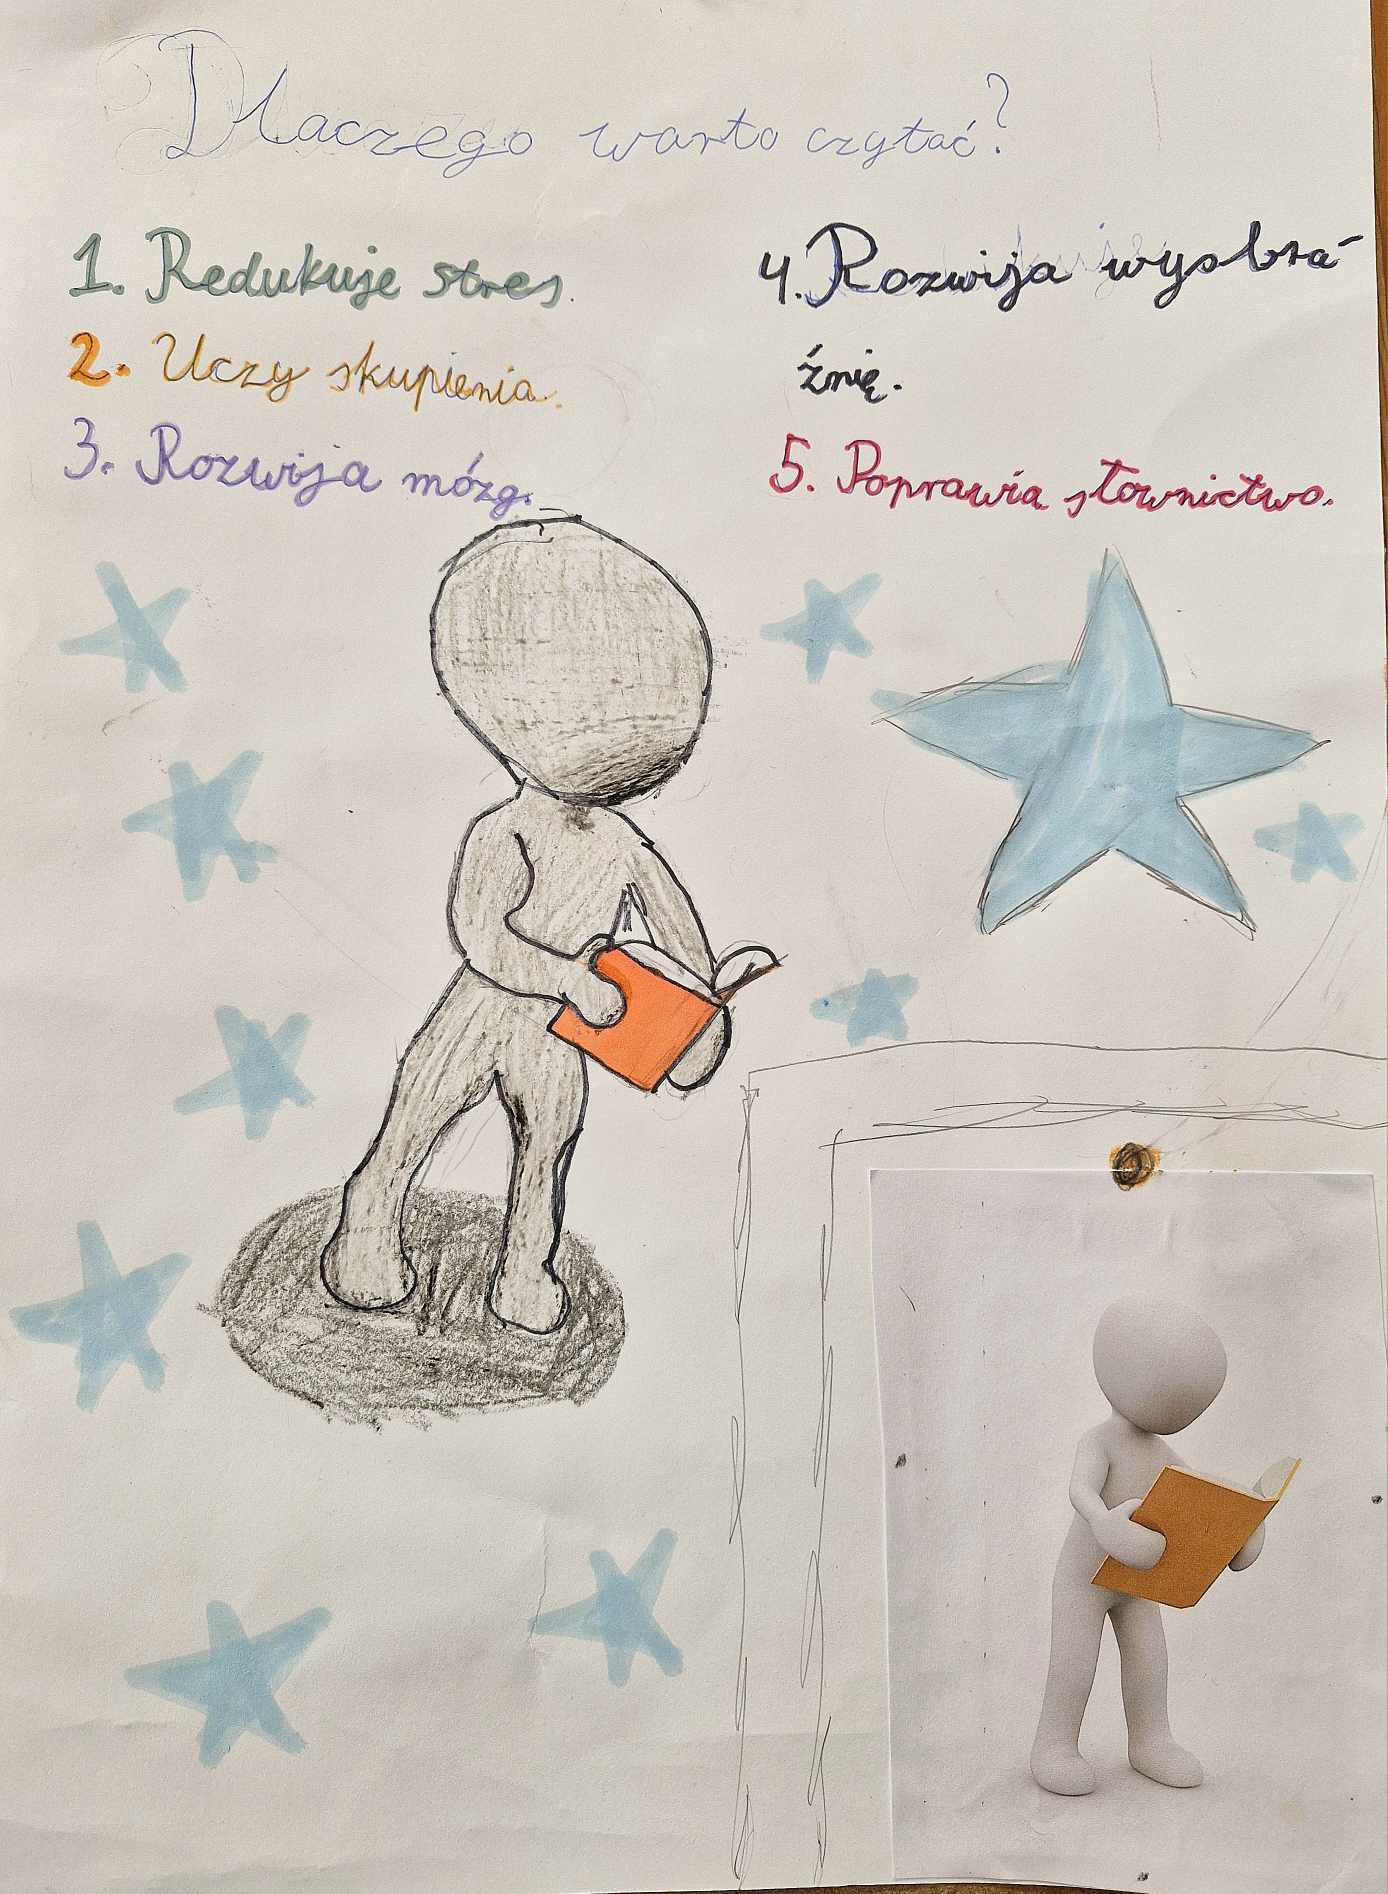 Dlaczego warto czytać?
1. Redukuje stres.
2. Uczy skupienia.
3. Rozwija mózg.
4. Rozwija wyobra-
źnię.
5. Poprawia słownictwo.